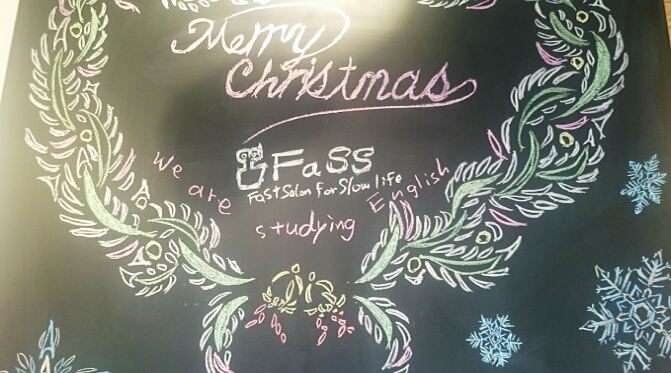 Merry
Christmas
FaSS
Fast Salon for Slow life
We are studying English